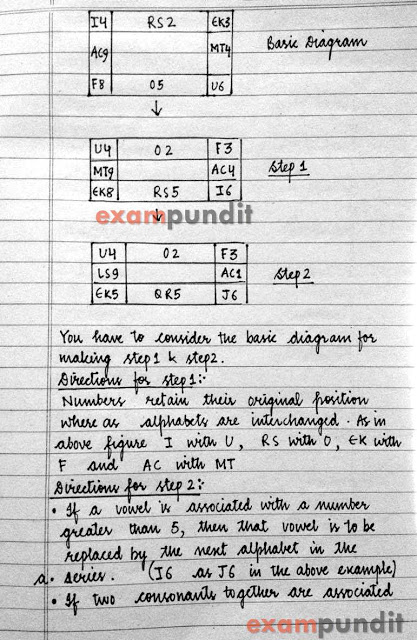 I4 RS2 EK3
AC9 MT4
F8 O5 U6
Basic Diagram
U4 O2 F3
MT9 AC4
EK8 RS5 I6
Step 1
exampundit
U4 O2 F3
LS9 AC1
EK5 QR5 J6
Step 2
You have to consider the basic diagram for
making step1 & step2.
Directions for step1:-
Numbers retain their original position
where as alphabets are interchanged. As in
above figure I with U, RS with O, EK with
F and AC with MT
Directions for step 2:-
• If a vowel is associated with a number
greater than 5, then that vowel is to be
replaced by the next alphabet in the
a. series. (I6 as J6 in the above example)
• If two consonants together are associated
exampundit